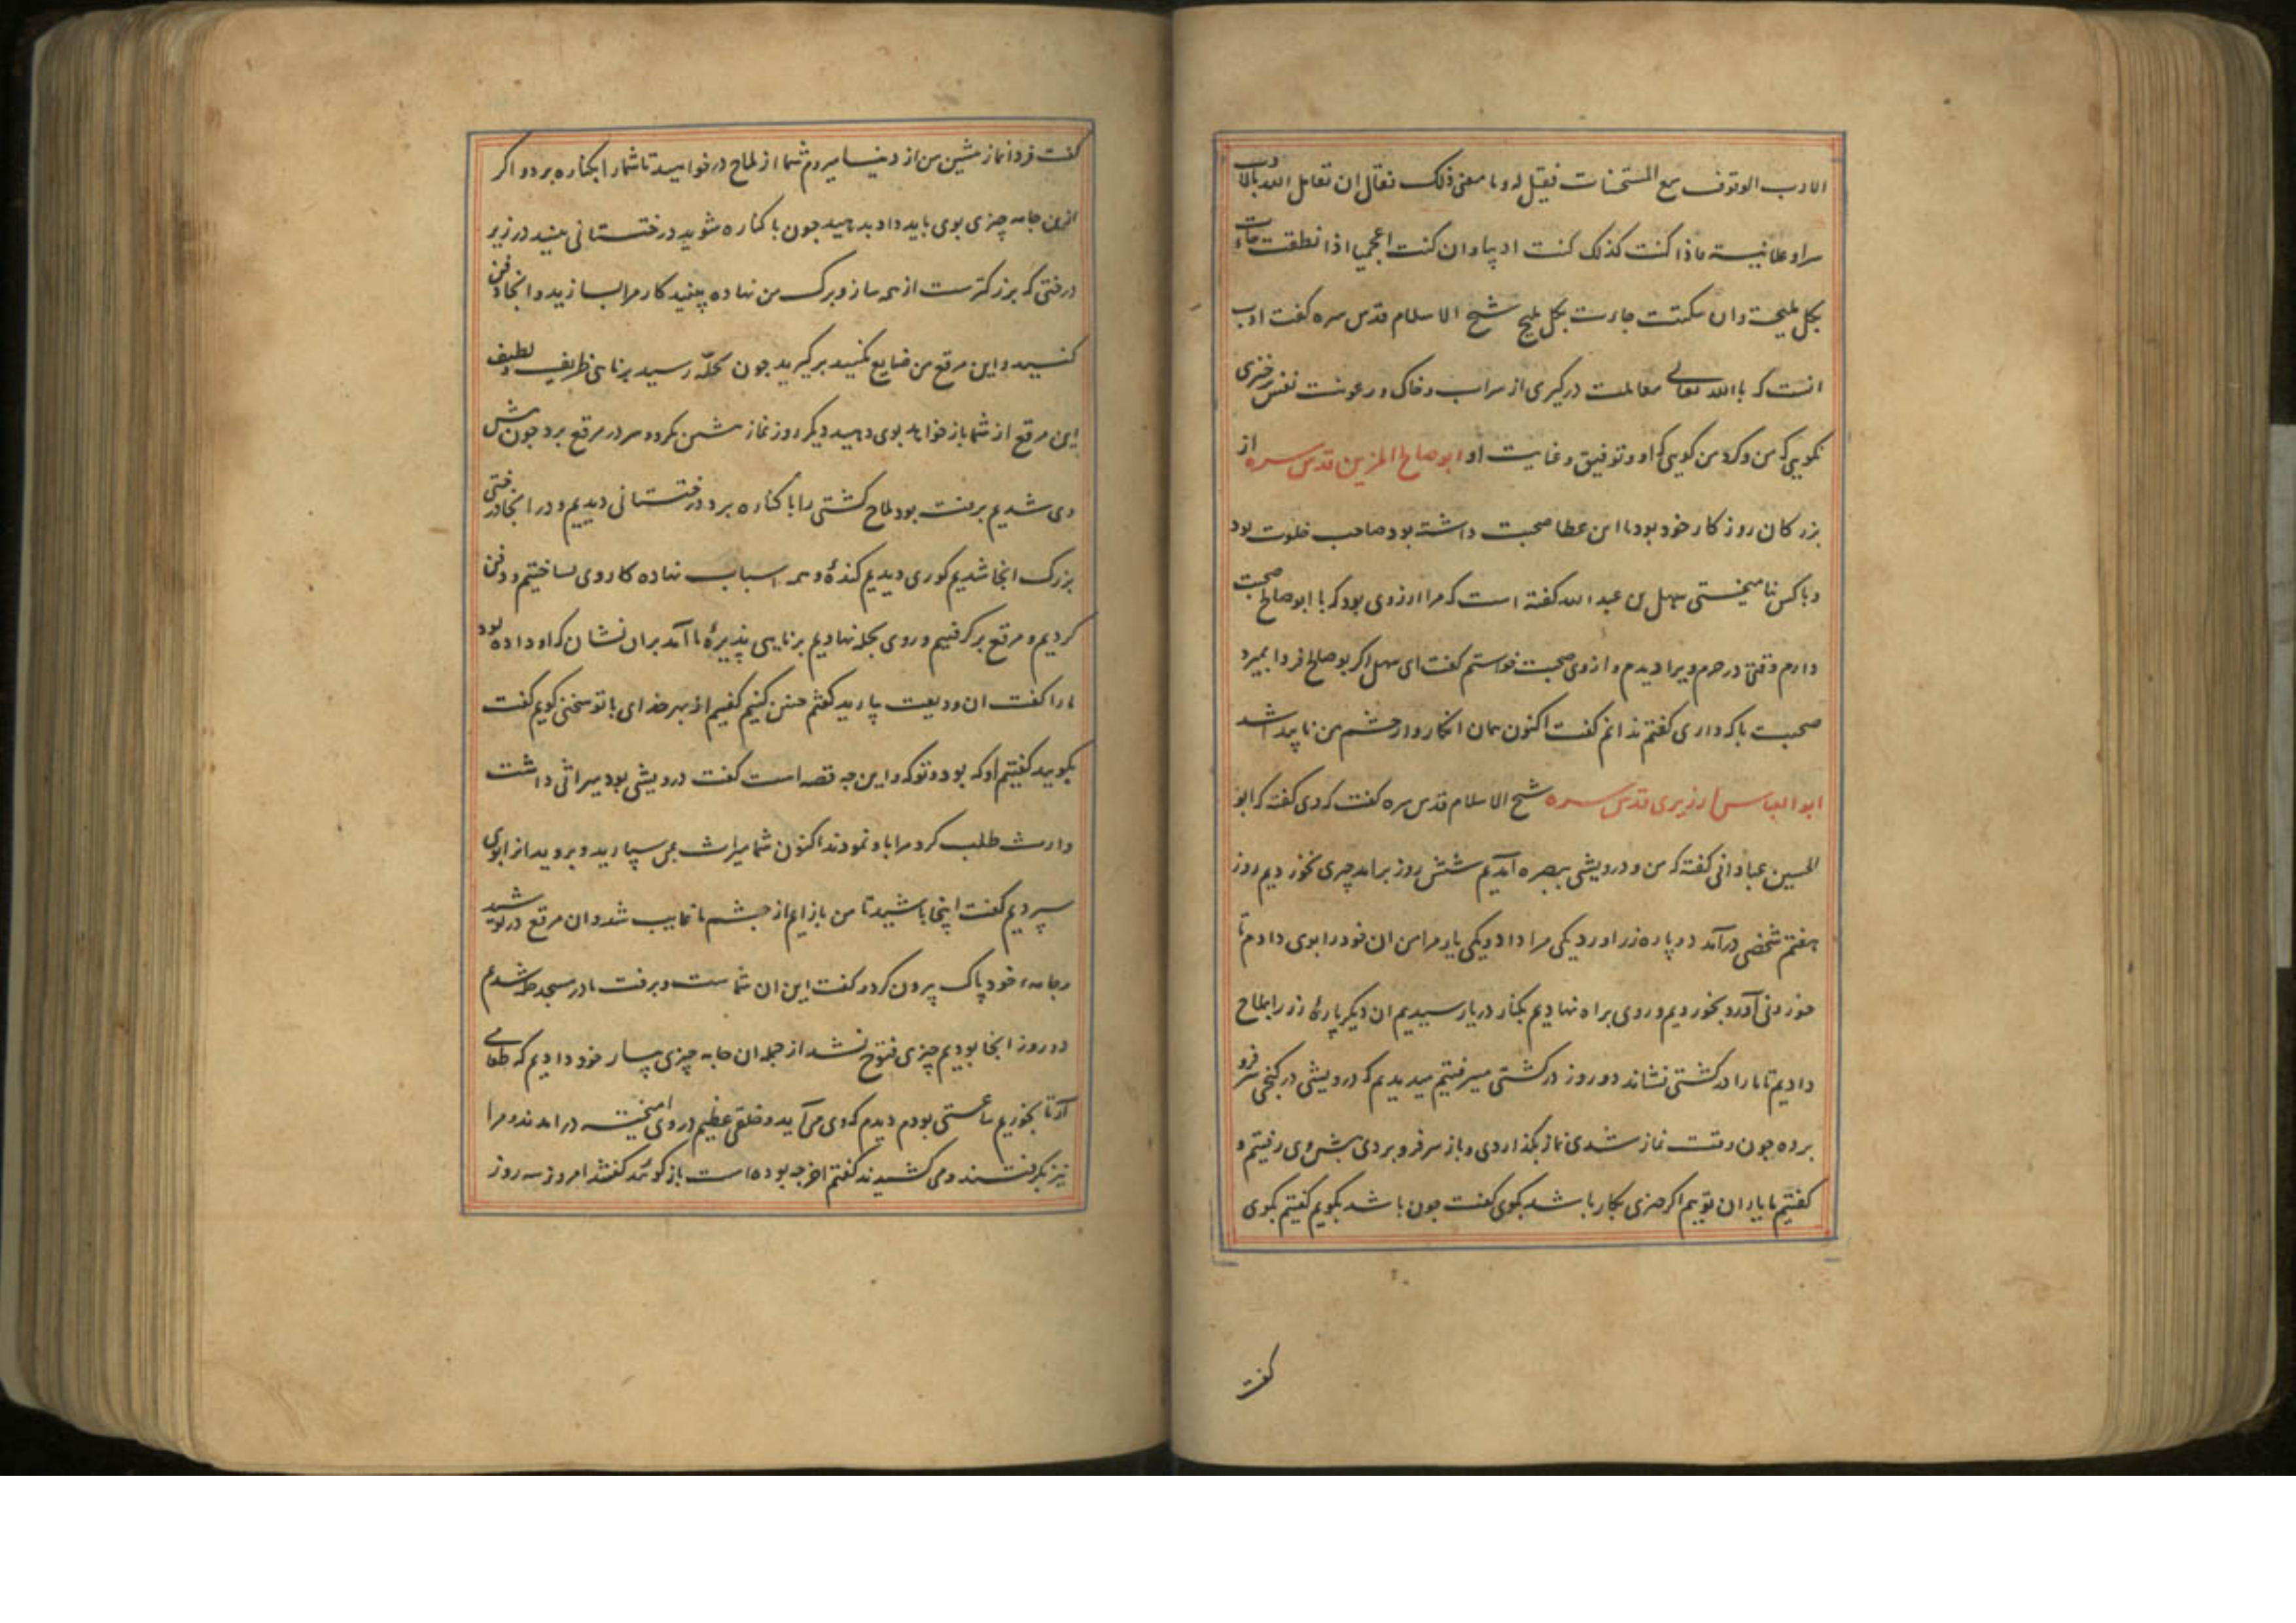 الادب الوقوف مع المستحسنات فقیل له و ما معنی ذلک فقال ان تعامل الله بالادب
سرا و علانیة فاذا کنت کذلک کنت ادیبا و ان کنت اعجمیا اذا نطقت جاءت
بکل ملیحة و ان سکتت جاءت بکل ملیح شیخ الاسلام قدس سره گفت ادب
انست که با الله تعالی معاملت درگیری از سراب و خاک و رعونت نفس برخیزی
نگویی که من و که من گویی که او و توفیق و عنایت او ابو صالح المزین قدس سره از
بزرکان روزکار خود بود با ابن عطا صحبت داشته بود صاحب خلوت بود
و با کس نیامیختی سهل بن عبد الله گفته است که مرا ارزوی بود که با ابو صالح صحبت
دارم وقتی در حرم ویرا دیدم و از وی صحبت خواستم گفت ای سهل اگر بوصالح فردا بمیرد
صحبت با که داری گفتم ندانم گفت اکنون همان انکار و از چشم من ناپیدا شد
ابو العباس ارزیزی قدس سره شیخ الاسلام قدس سره گفت که وی گفته که ابو
الحسین عبادانی گفته که من و درویشی ببصره آمدیم شش روز برامد چیزی نخوردیم روز
هفتم شخصی درآمد دو پاره زر اورد یکی مرا داد و یکی یار مرا من ان خود را بوی دادم تا
خوردنی آورد بخوردیم و روی براه نهادیم بکنار دریا رسیدیم ان دیگر پارهٔ زر را بملاح
دادیم تا ما را در کشتی نشاند دو روز در کشتی میرفتیم میدیدیم که درویشی در کنجی سر فرو
برده چون وقت نماز شدی نماز بگذاردی و باز سر فرو بردی پیش وی رفتیم و
گفتیم ما یاران توییم اگر چیزی بکار باشد بگوی گفت چون باشد بگویم گفتیم بگوی
گفت
گفت فردا نماز پشین من از دنیا میروم شما از ملاح درخواهید تا شما را بکناره برد و اگر
ازین جامه چیزی بوی باید داد بدهید چون با کناره شوید درختستانی بینید در زیر
درختی که بزرکترست از همه ساز و برک من نهاده بینید کار مرا بسازید و انجا دفن
کنید و این مرقع من ضایع مکنید برگیرید چون بحلّه رسید برنایی ظریف و لطیف
این مرقع از شما بازخواهد بوی دهید دیگر روز نماز پشین بکرد و سر در مرقع برد چون پیش
وی شدیم برفته بود ملاح کشتی را با کناره برد درختستانی دیدیم و در انجا درختی
بزرک انجا شدیم گوری دیدیم کنده و همه اسباب نهاده کار وی بساختیم و دفن
کردیم و مرقع برگرفتیم و روی بحله نهادیم برنایی پذیرهٔ ما آمد بران نشان که او داده بود
ما را گفت ان ودیعت بیارید گفتم چنین کنیم گفتیم از بهر خدای با تو سخنی گویم گفت
بگویید گفتیم او که بود و تو که و این چه قصه است گفت درویشی بود میراثی داشت
وارث طلب کرد مرا باو نمودند اکنون شما میراث بمن سپارید و بروید انرا بوی
سپردیم گفت اینجا باشید تا من باز ایم از چشم ما غایب شد و ان مرقع درپوشید
و جامه خود پاک بیرون کرد و گفت این ان شماست و برفت ما در مسجد حله شدیم
دو روز انجا بودیم چیزی فتوح نشد از جمله ان جامه چیزی بیار خود دادیم که طعامی
آرد تا بخوریم ساعتی بودم دیدم که وی می آید و خلقی عظیم در وی امیخته درامدند و مرا
نیز بگرفتند و می کشیدند گفتم اخر چه بوده است بازگوئید گفتند امروز سه روز